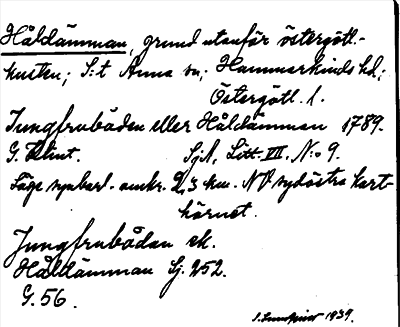 Håldämman, grund utanför östergötl.-
kusten; S:t Anna sn; Hammarkinds hd;
Östergötl. l.
Jungfrubåden eller Håldämman 1789.
G. Klint. SjA, Litt. VII, N:o 9.
Läge synbarl. omkr. 2,3 km. NO sydöstra kart-
hörnet.
Jungfrubådan sk.
Håldämman Sj. 252.
G. 56.
I. Lundquist 1939.